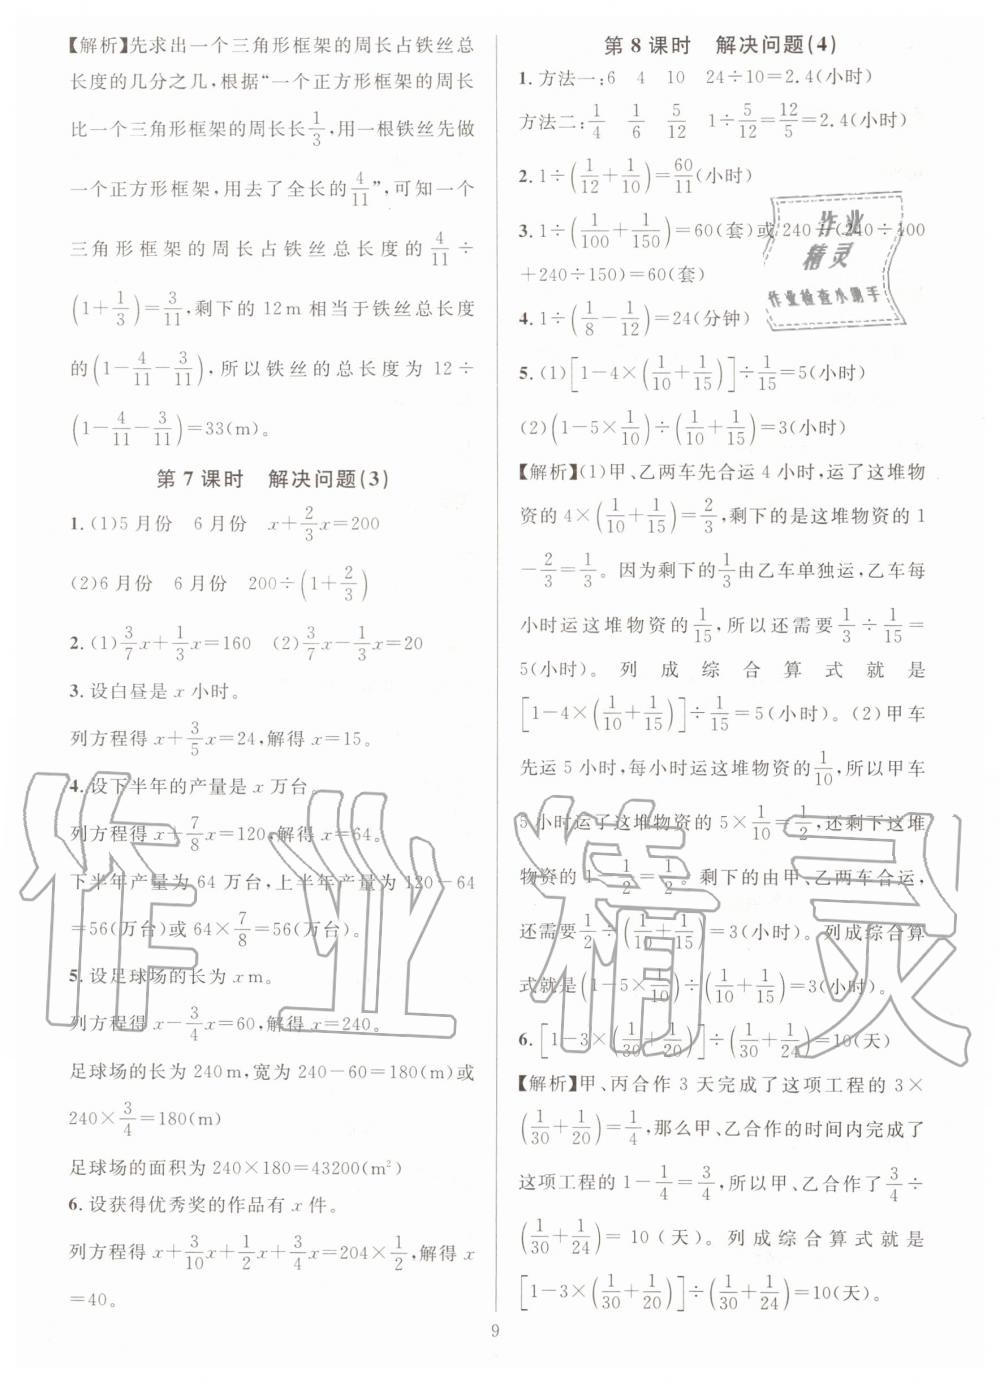 【解析】先求出一个三角形框架的周长占铁丝总
长度的几分之几,根据“一个正方形框架的周长
比一个三角形框架的周长长1/3,用一根铁丝先做
一个正方形框架,用去了全长的4/11”,可知一个
三角形框架的周长占铁丝总长度的4/11÷
(1+1/3)=3/11,剩下的12m相当于铁丝总长度
的(1-4/11-3/11),所以铁丝的总长度为12÷
(1-4/11-3/11)=33(m)。
第7课时 解决问题(3)
1.(1)5月份 6月份 x+2/3x=200
(2)6月份 6月份 200÷(1+2/3)
2.(1)3/7x+1/3x=160 (2)3/7x-1/3x=20
3.设白昼是x小时。
列方程得x+3/5x=24,解得x=15。
4.设下半年的产量是x万台。
列方程得x+7/8x=120,解得x=64。
下半年产量为64万台,上半年产量为120-64
=56(万台)或64×7/8=56(万台)。
5.设足球场的长为x m。
列方程得x-3/4x=60,解得x=240。
足球场的长为240m,宽为240-60=180(m)或
240×3/4=180(m)
足球场的面积为240×180=43200(m²)
6.设获得优秀奖的作品有x件。
列方程得x+3/10x+1/2x+3/4x=204×1/2,解得x
=40。
第8课时 解决问题(4)
1.方法一:6 4 10 24÷10=2.4(小时)
方法二:1/4 1/6 5/12 1÷5/12=12/5=2.4(小时)
2.1÷(1/12+1/10)=60/11(小时)
3.1÷(1/100+1/150)=60(套)或240÷(240÷100
+240÷150)=60(套)
4.1÷(1/8-1/12)=24(分钟)
5.(1)[1-4×(1/10+1/15)]÷1/15=5(小时)
(2)(1-5×1/10)÷(1/10+1/15)=3(小时)
【解析】(1)甲、乙两车先合运4小时,运了这堆物
资的4×(1/10+1/15)=2/3,剩下的是这堆物资的1
-2/3=1/3。因为剩下的1/3由乙车单独运,乙车每
小时运这堆物资的1/15,所以还需要1/3÷1/15=
5(小时)。列成综合算式就是
[1-4×(1/10+1/15)]÷1/15=5(小时)。(2)甲车
先运5小时,每小时运这堆物资的1/10,所以甲车
5小时运了这堆物资的5×1/10=1/2,还剩下这堆
物资的1-1/2=1/2。剩下的由甲、乙两车合运,
还需要1/2÷(1/10+1/15)=3(小时)。列成综合算
式就是(1-5×1/10)÷(1/10+1/15)=3(小时)。
6.[1-3×(1/30+1/20)]÷(1/30+1/24)=10(天)
【解析】甲、丙合作3天完成了这项工程的3×
(1/30+1/20)=1/4,那么甲、乙合作的时间内完成了
这项工程的1-1/4=3/4,所以甲、乙合作了3/4÷
(1/30+1/24)=10(天)。列成综合算式就是
[1-3×(1/30+1/20)]÷(1/30+1/24)=10(天)。
作业
精灵
作业检查小助手
作业精灵
9